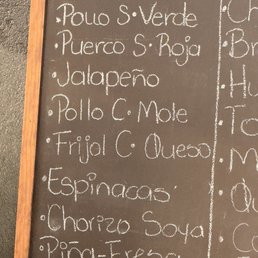 Pollo S. Verde
• Puerco S. Roja
• Jalapeño
• Pollo C. Mole
• Frijol C. Queso
• Espinacas
• Chorizo Soya
• Piña-Fresa